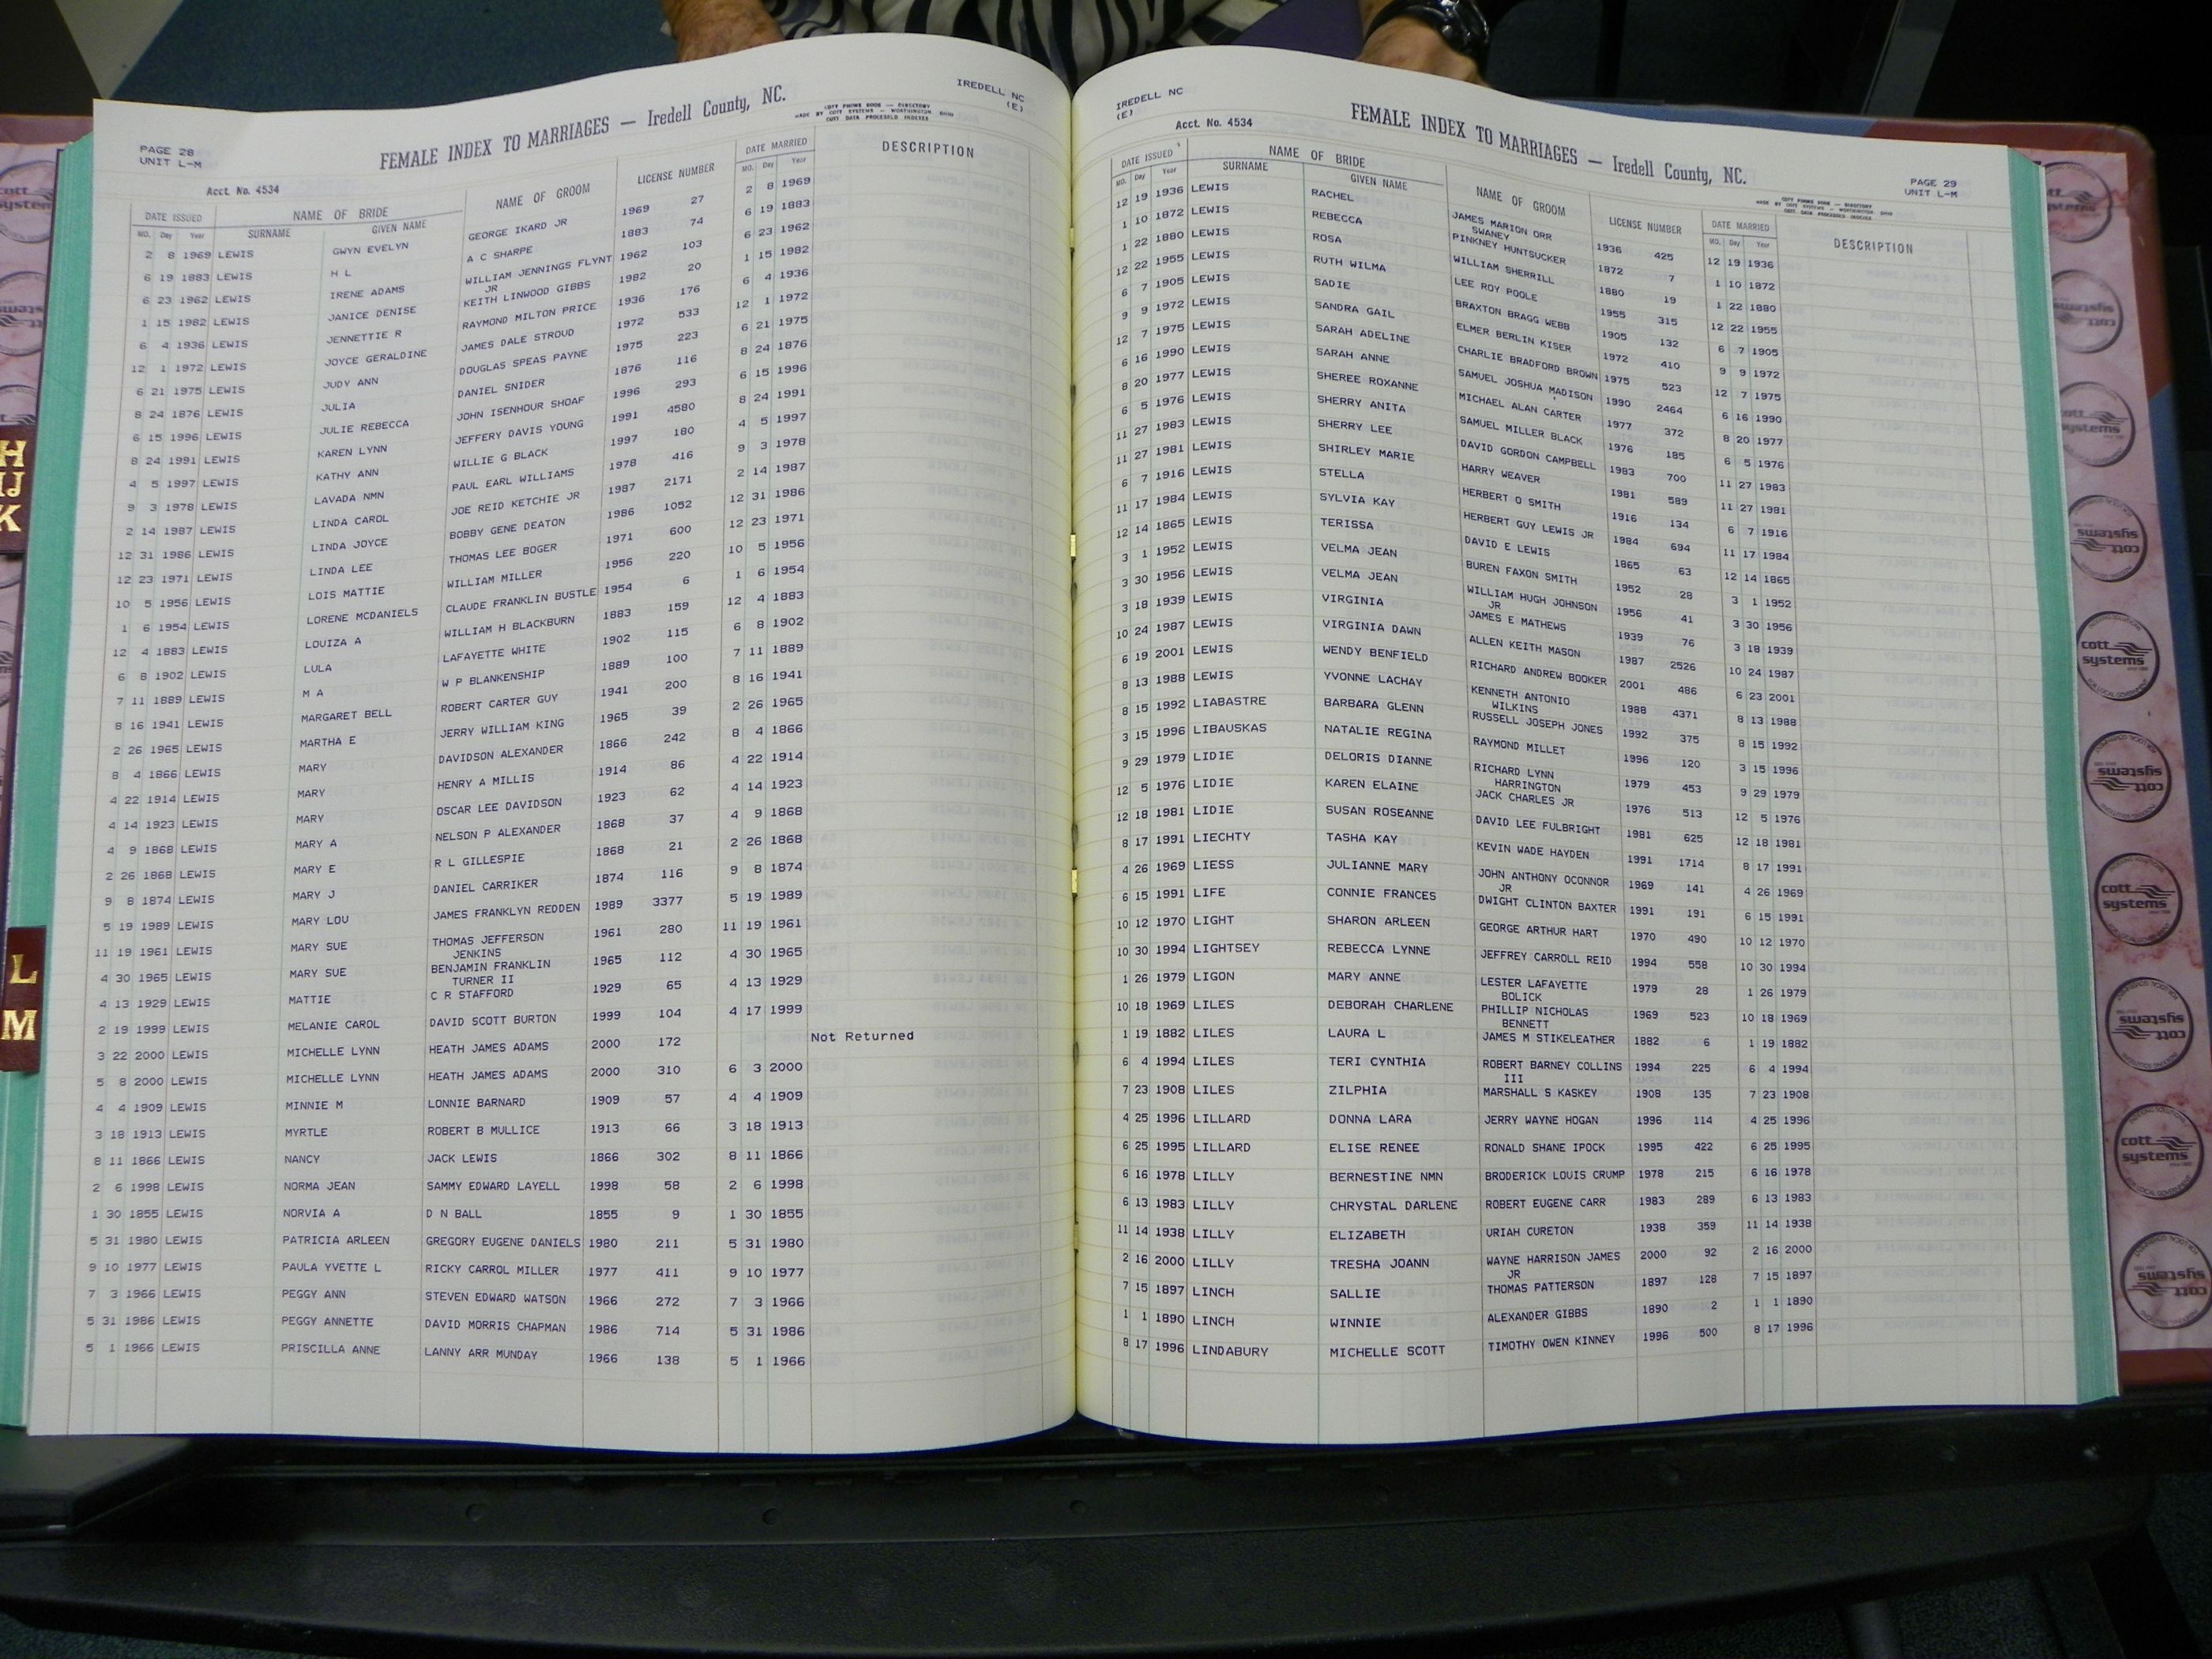 PAGE 28
UNIT L-M
FEMALE INDEX TO MARRIAGES — Iredell County, NC.
IREDELL NC
(E)
Acct. No. 4534
DATE ISSUED NAME OF BRIDE NAME OF GROOM LICENSE NUMBER DATE MARRIED DESCRIPTION
MO. Day Year SURNAME GIVEN NAME MO. Day Year
2 8 1969 LEWIS GWYN EVELYN GEORGE IKARD JR 1969 27 2 8 1969
6 19 1883 LEWIS H L A C SHARPE 1883 74 6 19 1883
6 23 1962 LEWIS IRENE ADAMS WILLIAM JENNINGS FLYNT 1962 103 6 23 1962
JR
1 15 1982 LEWIS JANICE DENISE KEITH LINWOOD GIBBS 1982 20 1 15 1982
6 4 1936 LEWIS JENNETTIE R RAYMOND MILTON PRICE 1936 176 6 4 1936
12 1 1972 LEWIS JOYCE GERALDINE JAMES DALE STROUD 1972 533 12 1 1972
6 21 1975 LEWIS JUDY ANN DOUGLAS SPEAS PAYNE 1975 223 6 21 1975
8 24 1876 LEWIS JULIA DANIEL SNIDER 1876 116 8 24 1876
6 15 1996 LEWIS JULIE REBECCA JOHN ISENHOUR SHOAF 1996 293 6 15 1996
8 24 1991 LEWIS KAREN LYNN JEFFERY DAVIS YOUNG 1991 4580 8 24 1991
4 5 1997 LEWIS KATHY ANN WILLIE G BLACK 1997 180 4 5 1997
9 3 1978 LEWIS LAVADA NMN PAUL EARL WILLIAMS 1978 416 9 3 1978
2 14 1987 LEWIS LINDA CAROL JOE REID KETCHIE JR 1987 2171 2 14 1987
12 31 1986 LEWIS LINDA JOYCE BOBBY GENE DEATON 1986 1052 12 31 1986
12 23 1971 LEWIS LINDA LEE THOMAS LEE BOGER 1971 600 12 23 1971
10 5 1956 LEWIS LOIS MATTIE WILLIAM MILLER 1956 220 10 5 1956
1 6 1954 LEWIS LORENE MCDANIELS CLAUDE FRANKLIN BUSTLE 1954 6 1 6 1954
12 4 1883 LEWIS LOUIZA A WILLIAM H BLACKBURN 1883 159 12 4 1883
6 8 1902 LEWIS LULA LAFAYETTE WHITE 1902 115 6 8 1902
7 11 1889 LEWIS M A W P BLANKENSHIP 1889 100 7 11 1889
8 16 1941 LEWIS MARGARET BELL ROBERT CARTER GUY 1941 200 8 16 1941
2 26 1965 LEWIS MARTHA E JERRY WILLIAM KING 1965 39 2 26 1965
8 4 1866 LEWIS MARY DAVIDSON ALEXANDER 1866 242 8 4 1866
4 22 1914 LEWIS MARY HENRY A MILLIS 1914 86 4 22 1914
4 14 1923 LEWIS MARY OSCAR LEE DAVIDSON 1923 62 4 14 1923
4 9 1868 LEWIS MARY A NELSON P ALEXANDER 1868 37 4 9 1868
2 26 1868 LEWIS MARY E R L GILLESPIE 1868 21 2 26 1868
9 8 1874 LEWIS MARY J DANIEL CARRIKER 1874 116 9 8 1874
5 19 1989 LEWIS MARY LOU JAMES FRANKLYN REDDEN 1989 3377 5 19 1989
11 19 1961 LEWIS MARY SUE THOMAS JEFFERSON 1961 280 11 19 1961
JENKINS
4 30 1965 LEWIS MARY SUE BENJAMIN FRANKLIN 1965 112 4 30 1965
TURNER II
4 13 1929 LEWIS MATTIE C R STAFFORD 1929 65 4 13 1929
2 19 1999 LEWIS MELANIE CAROL DAVID SCOTT BURTON 1999 104 4 17 1999
3 22 2000 LEWIS MICHELLE LYNN HEATH JAMES ADAMS 2000 172 Not Returned
5 8 2000 LEWIS MICHELLE LYNN HEATH JAMES ADAMS 2000 310 6 3 2000
4 4 1909 LEWIS MINNIE M LONNIE BARNARD 1909 57 4 4 1909
3 18 1913 LEWIS MYRTLE ROBERT B MULLICE 1913 66 3 18 1913
8 11 1866 LEWIS NANCY JACK LEWIS 1866 302 8 11 1866
2 6 1998 LEWIS NORMA JEAN SAMMY EDWARD LAYELL 1998 58 2 6 1998
1 30 1855 LEWIS NORVIA A D N BALL 1855 9 1 30 1855
5 31 1980 LEWIS PATRICIA ARLEEN GREGORY EUGENE DANIELS 1980 211 5 31 1980
9 10 1977 LEWIS PAULA YVETTE L RICKY CARROL MILLER 1977 411 9 10 1977
7 3 1966 LEWIS PEGGY ANN STEVEN EDWARD WATSON 1966 272 7 3 1966
5 31 1986 LEWIS PEGGY ANNETTE DAVID MORRIS CHAPMAN 1986 714 5 31 1986
5 1 1966 LEWIS PRISCILLA ANNE LANNY ARR MUNDAY 1966 138 5 1 1966
IREDELL NC
(E)
FEMALE INDEX TO MARRIAGES — Iredell County, NC.
PAGE 29
UNIT L-M
Acct. No. 4534
DATE ISSUED NAME OF BRIDE NAME OF GROOM LICENSE NUMBER DATE MARRIED DESCRIPTION
MO. Day Year SURNAME GIVEN NAME MO. Day Year
12 19 1936 LEWIS RACHEL JAMES MARION ORR 1936 425 12 19 1936
SWANEY
1 10 1872 LEWIS REBECCA PINKNEY HUNTSUCKER 1872 7 1 10 1872
1 22 1880 LEWIS ROSA WILLIAM SHERRILL 1880 19 1 22 1880
12 22 1955 LEWIS RUTH WILMA LEE ROY POOLE 1955 315 12 22 1955
6 7 1905 LEWIS SADIE BRAXTON BRAGG WEBB 1905 132 6 7 1905
9 9 1972 LEWIS SANDRA GAIL ELMER BERLIN KISER 1972 410 9 9 1972
12 7 1975 LEWIS SARAH ADELINE CHARLIE BRADFORD BROWN 1975 523 12 7 1975
6 16 1990 LEWIS SARAH ANNE SAMUEL JOSHUA MADISON 1990 2464 6 16 1990
8 20 1977 LEWIS SHEREE ROXANNE MICHAEL ALAN CARTER 1977 372 8 20 1977
6 5 1976 LEWIS SHERRY ANITA SAMUEL MILLER BLACK 1976 185 6 5 1976
11 27 1983 LEWIS SHERRY LEE DAVID GORDON CAMPBELL 1983 700 11 27 1983
11 27 1981 LEWIS SHIRLEY MARIE HARRY WEAVER 1981 589 11 27 1981
6 7 1916 LEWIS STELLA HERBERT O SMITH 1916 134 6 7 1916
11 17 1984 LEWIS SYLVIA KAY HERBERT GUY LEWIS JR 1984 694 11 17 1984
12 14 1865 LEWIS TERISSA DAVID E LEWIS 1865 63 12 14 1865
3 1 1952 LEWIS VELMA JEAN BUREN FAXON SMITH 1952 28 3 1 1952
3 30 1956 LEWIS VELMA JEAN WILLIAM HUGH JOHNSON 1956 41 3 30 1956
JR
3 18 1939 LEWIS VIRGINIA JAMES E MATHEWS 1939 76 3 18 1939
10 24 1987 LEWIS VIRGINIA DAWN ALLEN KEITH MASON 1987 2526 10 24 1987
6 19 2001 LEWIS WENDY BENFIELD RICHARD ANDREW BOOKER 2001 486 6 23 2001
8 13 1988 LEWIS YVONNE LACHAY KENNETH ANTONIO 1988 4371 8 13 1988
WILKINS
8 15 1992 LIABASTRE BARBARA GLENN RUSSELL JOSEPH JONES 1992 375 8 15 1992
3 15 1996 LIBAUSKAS NATALIE REGINA RAYMOND MILLET 1996 120 3 15 1996
9 29 1979 LIDIE DELORIS DIANNE RICHARD LYNN 1979 453 9 29 1979
HARRINGTON
12 5 1976 LIDIE KAREN ELAINE JACK CHARLES JR 1976 513 12 5 1976
12 18 1981 LIDIE SUSAN ROSEANNE DAVID LEE FULBRIGHT 1981 625 12 18 1981
8 17 1991 LIECHTY TASHA KAY KEVIN WADE HAYDEN 1991 1714 8 17 1991
4 26 1969 LIESS JULIANNE MARY JOHN ANTHONY OCONNOR 1969 141 4 26 1969
JR
6 15 1991 LIFE CONNIE FRANCES DWIGHT CLINTON BAXTER 1991 191 6 15 1991
10 12 1970 LIGHT SHARON ARLEEN GEORGE ARTHUR HART 1970 490 10 12 1970
10 30 1994 LIGHTSEY REBECCA LYNNE JEFFREY CARROLL REID 1994 558 10 30 1994
1 26 1979 LIGON MARY ANNE LESTER LAFAYETTE 1979 28 1 26 1979
BOLICK
10 18 1969 LILES DEBORAH CHARLENE PHILLIP NICHOLAS 1969 523 10 18 1969
BENNETT
1 19 1882 LILES LAURA L JAMES M STIKELEATHER 1882 6 1 19 1882
6 4 1994 LILES TERI CYNTHIA ROBERT BARNEY COLLINS 1994 225 6 4 1994
III
7 23 1908 LILES ZILPHIA MARSHALL S KASKEY 1908 135 7 23 1908
4 25 1996 LILLARD DONNA LARA JERRY WAYNE HOGAN 1996 114 4 25 1996
6 25 1995 LILLARD ELISE RENEE RONALD SHANE IPOCK 1995 422 6 25 1995
6 16 1978 LILLY BERNESTINE NMN BRODERICK LOUIS CRUMP 1978 215 6 16 1978
6 13 1983 LILLY CHRYSTAL DARLENE ROBERT EUGENE CARR 1983 289 6 13 1983
11 14 1938 LILLY ELIZABETH URIAH CURETON 1938 359 11 14 1938
2 16 2000 LILLY TRESHA JOANN WAYNE HARRISON JAMES 2000 92 2 16 2000
JR
7 15 1897 LINCH SALLIE THOMAS PATTERSON 1897 128 7 15 1897
1 1 1890 LINCH WINNIE ALEXANDER GIBBS 1890 2 1 1 1890
8 17 1996 LINDABURY MICHELLE SCOTT TIMOTHY OWEN KINNEY 1996 500 8 17 1996
H
IJ
K
L
M
cott
systems